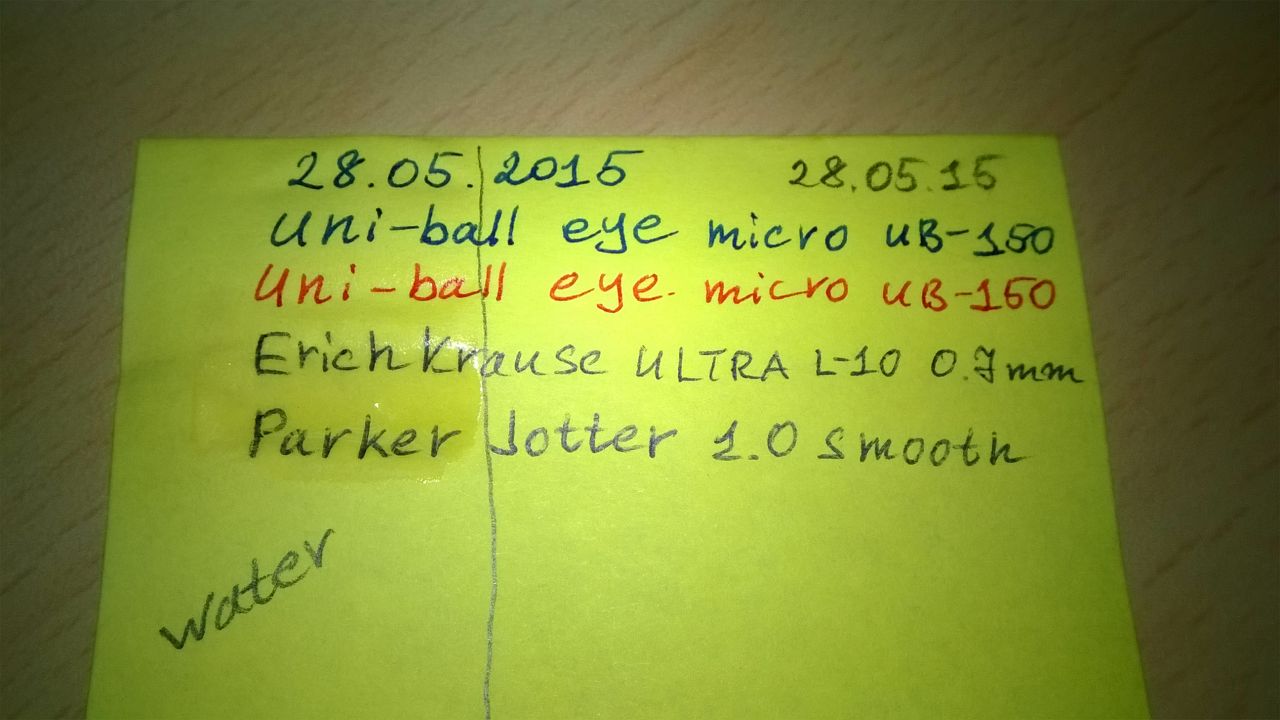 28.05.2015 28.05.15
Uni-ball eye micro UB-150
Uni-ball eye micro UB-150
ErichKrause ULTRA L-10 0.7mm
Parker Jotter 1.0 smooth
water